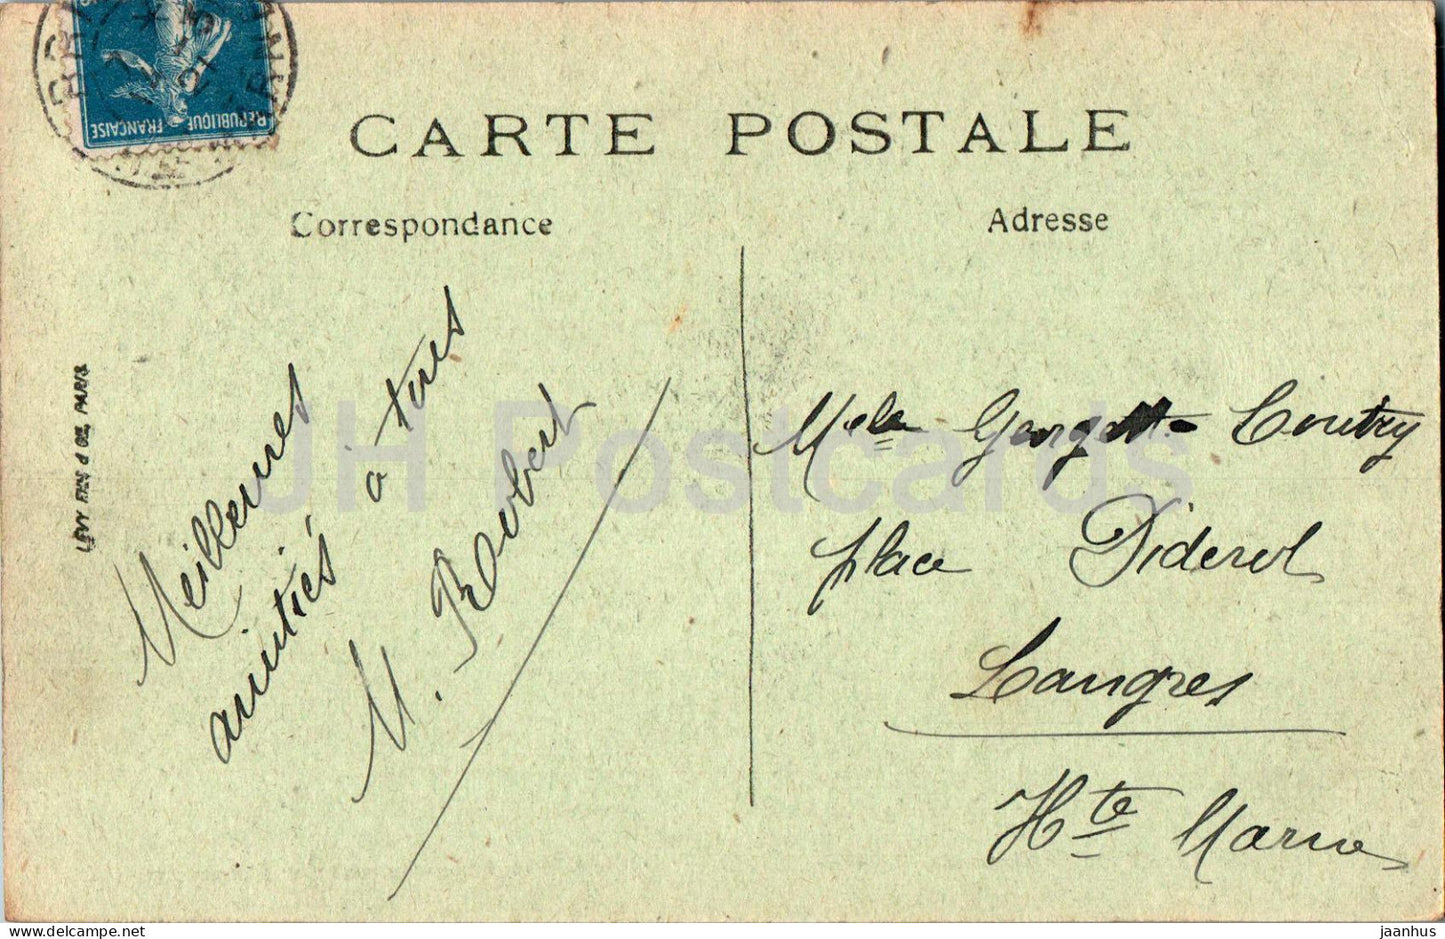 REPUBLIQUE FRANÇAISE
CARTE POSTALE
Correspondance
Adresse
LEVY FILS & Cie, PARIS
Meilleures
amitiés à tous
M. Robert
Melle Georgette Coutry
place Diderot
Langres
Hte Marne
JH Postcards
jaanhus